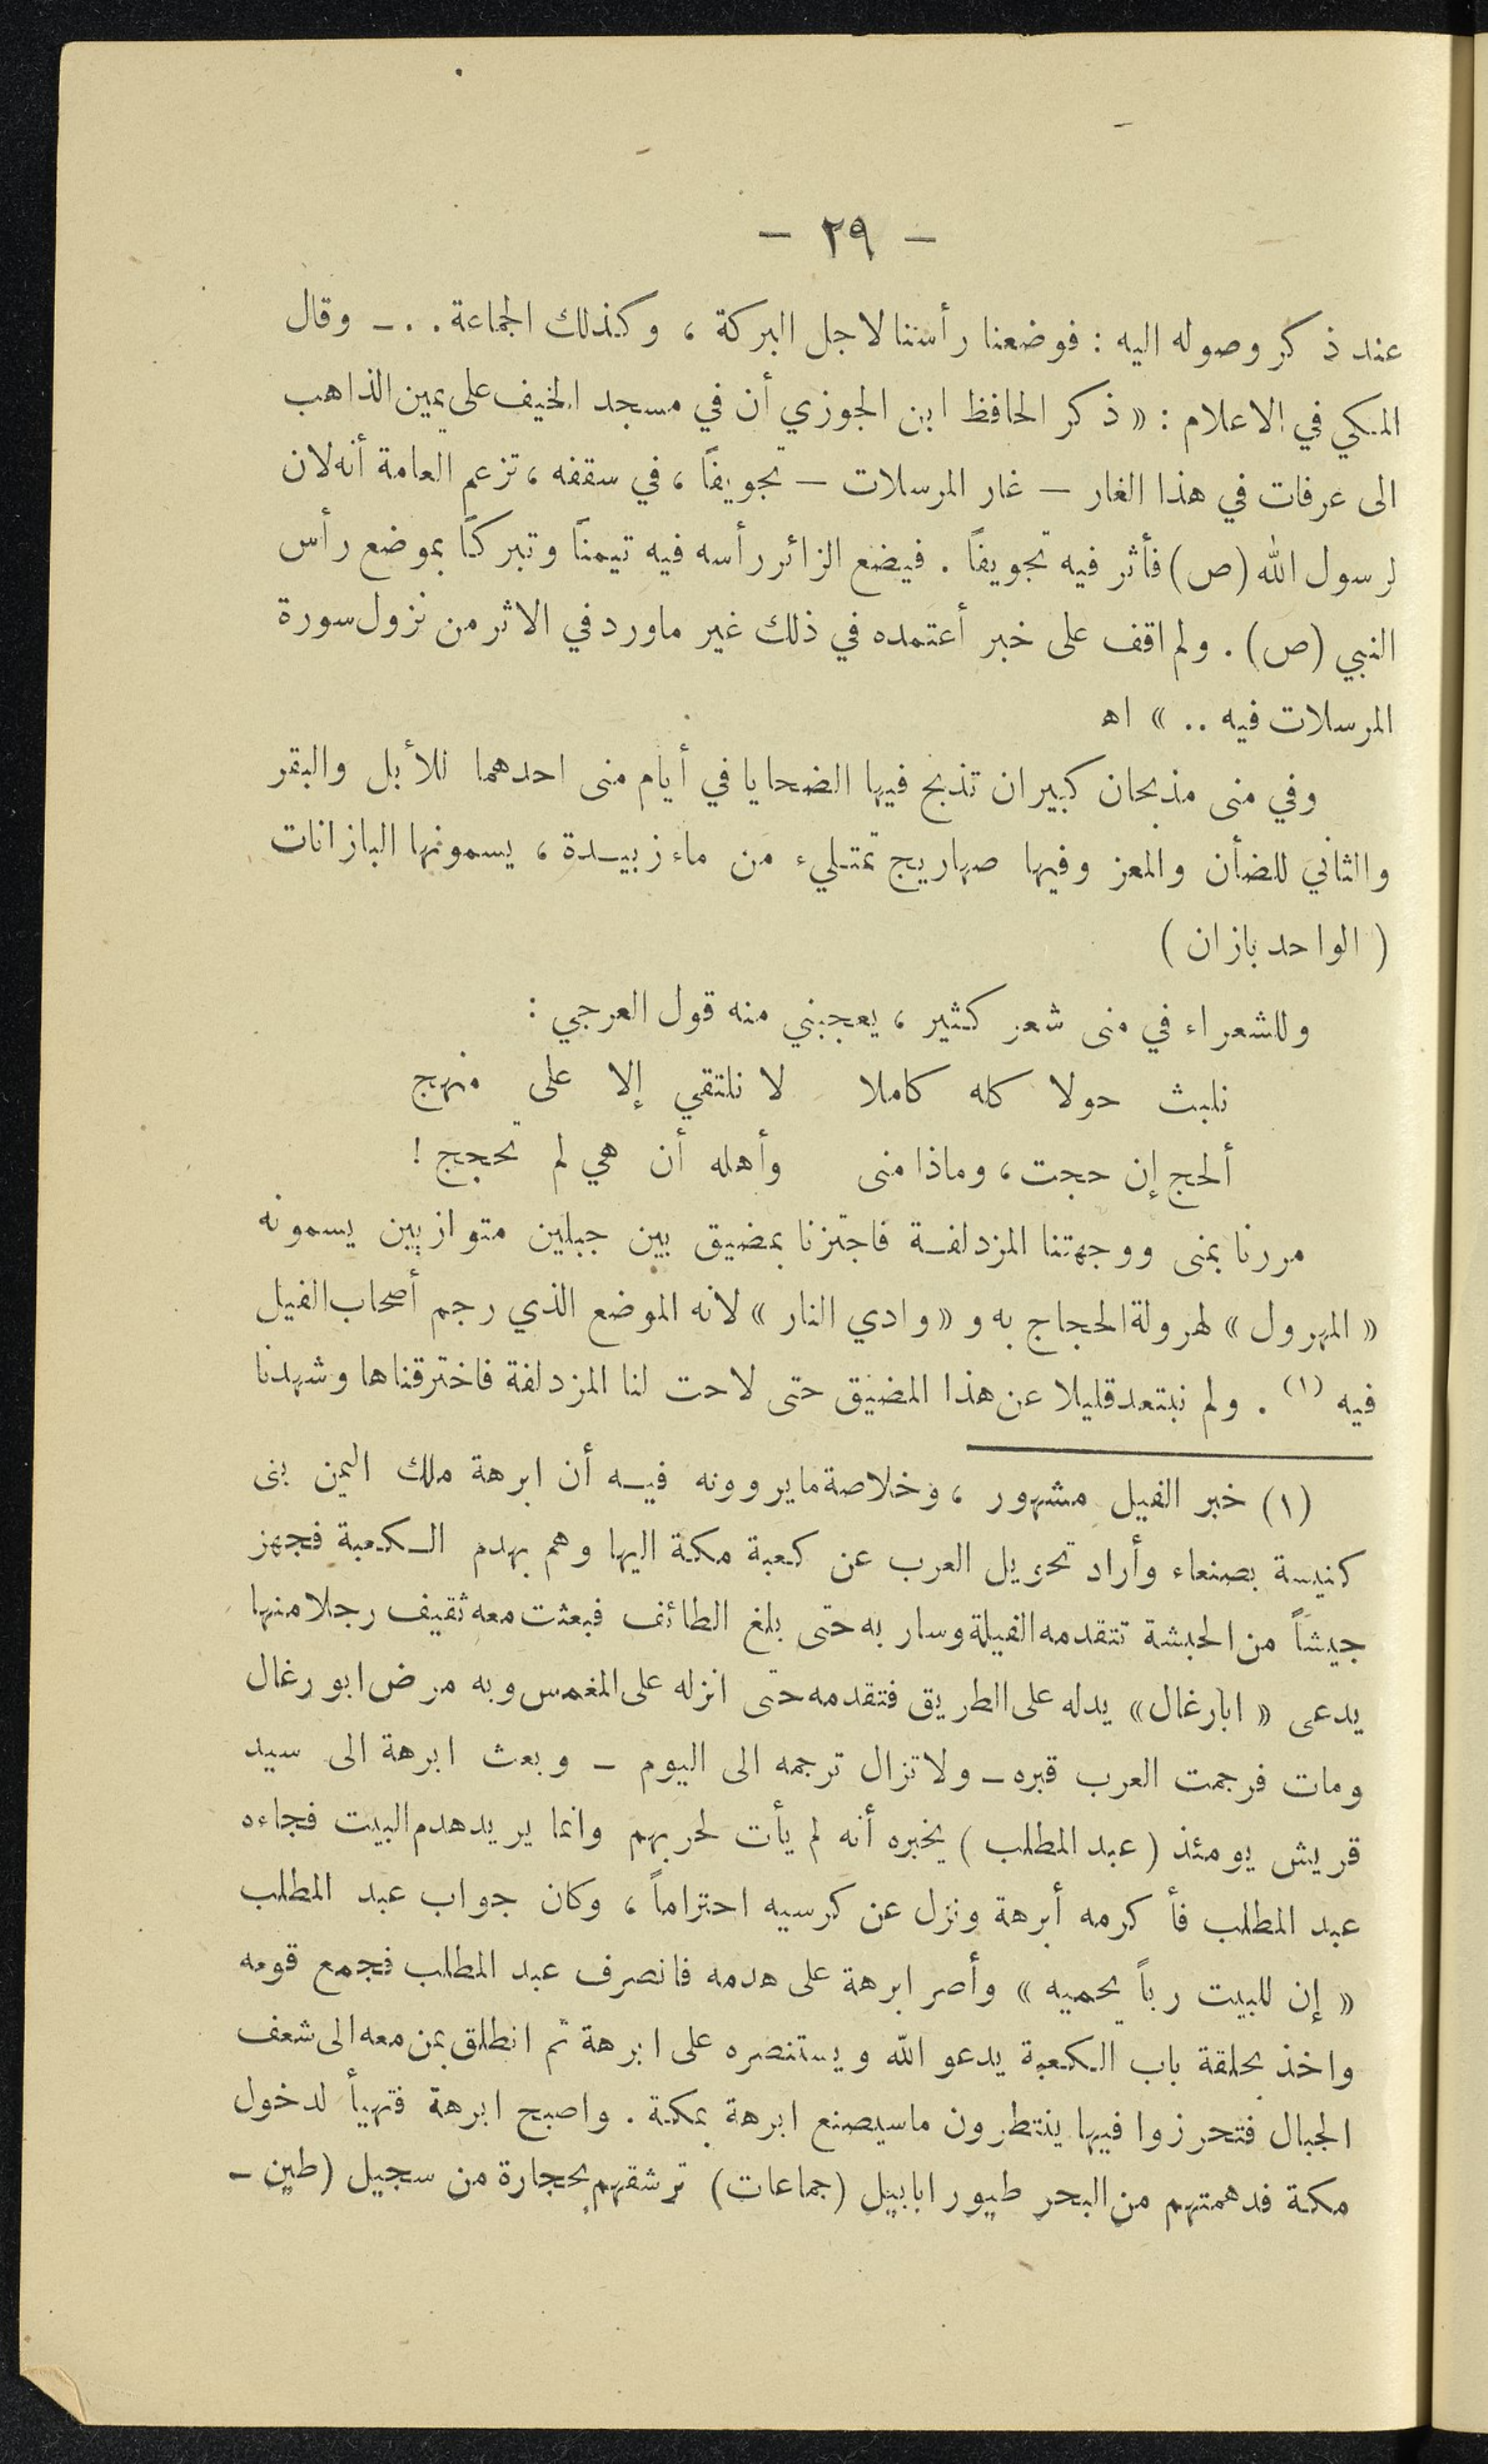 — ٢٩ —
عند ذكر وصوله اليه : فوضعنا رأسنا لاجل البركة ، وكذلك الجماعة . . — وقال
المكي في الاعلام : « ذكر الحافظ ابن الجوزي أن في مسجد الخيف على يمين الذاهب
الى عرفات في هذا الغار — غار المرسلات — تجويفاً ، في سقفه ، تزعم العامة أنه لان
لرسول الله (ص) فأثر فيه تجويفاً . فيضع الزائر رأسه فيه تيمناً وتبركاً بموضع رأس
النبي (ص) . ولم اقف على خبر أعتمده في ذلك غير ماورد في الاثر من نزول سورة
المرسلات فيه .. » اه
وفي منى مذبحان كبيران تذبح فيها الضحايا في أيام منى احدهما للأبل والبقر
والثاني للضأن والمعز وفيها صهاريج تمتليء من ماء زبيدة ، يسمونها البازانات
( الواحد بازان )
وللشعراء في منى شعر كثير ، يعجبني منه قول العرجي :
نلبث حولا كله كاملا لا نلتقي إلا على منهج
ألحج إن حجت ، وماذا منى وأهله أن هي لم تحجج !
مررنا بمنى ووجهتنا المزدلفة فاجتزنا بمضيق بين جبلين متوازيين يسمونه
« المهرول » لهرولة الحجاج به و « وادي النار » لانه الموضع الذي رجم أصحاب الفيل
فيه (١) . ولم نبتعد قليلا عن هذا المضيق حتى لاحت لنا المزدلفة فاخترقناها وشهدنا
(١) خبر الفيل مشهور ، وخلاصة مايروونه فيه أن ابرهة ملك اليمن بنى
كنيسة بصنعاء وأراد تحويل العرب عن كعبة مكة اليها وهم بهدم الكعبة فجهز
جيشاً من الحبشة تتقدمه الفيلة وسار به حتى بلغ الطائف فبعثت معه ثقيف رجلا منها
يدعى « ابارغال » يدله على الطريق فتقدمه حتى انزله على المغمس وبه مرض ابو رغال
ومات فرجمت العرب قبره — ولا تزال ترجمه الى اليوم — وبعث ابرهة الى سيد
قريش يومئذ ( عبد المطلب ) يخبره أنه لم يأت لحربهم وانما يريد هدم البيت فجاءه
عبد المطلب فأكرمه أبرهة ونزل عن كرسيه احتراماً ، وكان جواب عبد المطلب
« إن للبيت رباً يحميه » وأصر ابرهة على هدمه فانصرف عبد المطلب فجمع قومه
واخذ بحلقة باب الكعبة يدعو الله ويستنصره على ابرهة ثم انطلق بمن معه الى شعف
الجبال فتحرزوا فيها ينتطرون ماسيصنع ابرهة بمكة . واصبح ابرهة فتهيأ لدخول
مكة فدهمتهم من البحر طيور ابابيل (جماعات) ترشقهم بحجارة من سجيل (طين —